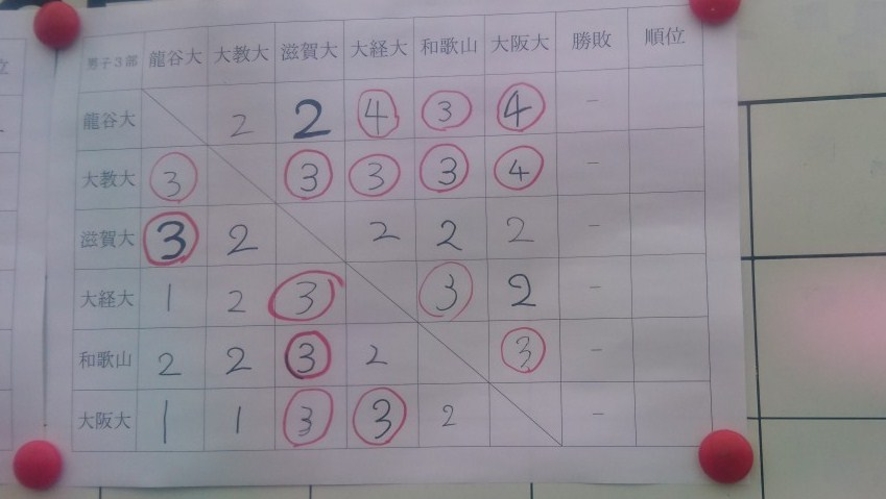 男子3部 龍谷大 大教大 滋賀大 大経大 和歌山 大阪大 勝敗 順位
龍谷大 2 2 4 3 4 −
大教大 3 3 3 3 4 −
滋賀大 3 2 2 2 2 −
大経大 1 2 3 3 2 −
和歌山 2 2 3 2 3 −
大阪大 1 1 3 3 2 −